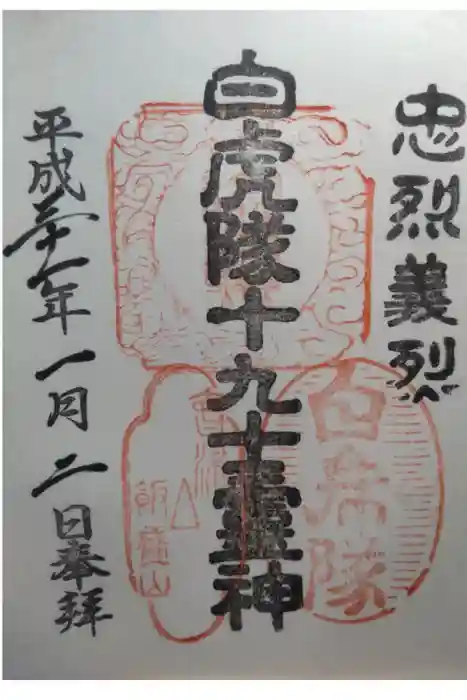 忠烈義烈
白虎隊十九士靈神
平成三十一年一月二日奉拝
白虎隊
飯盛山